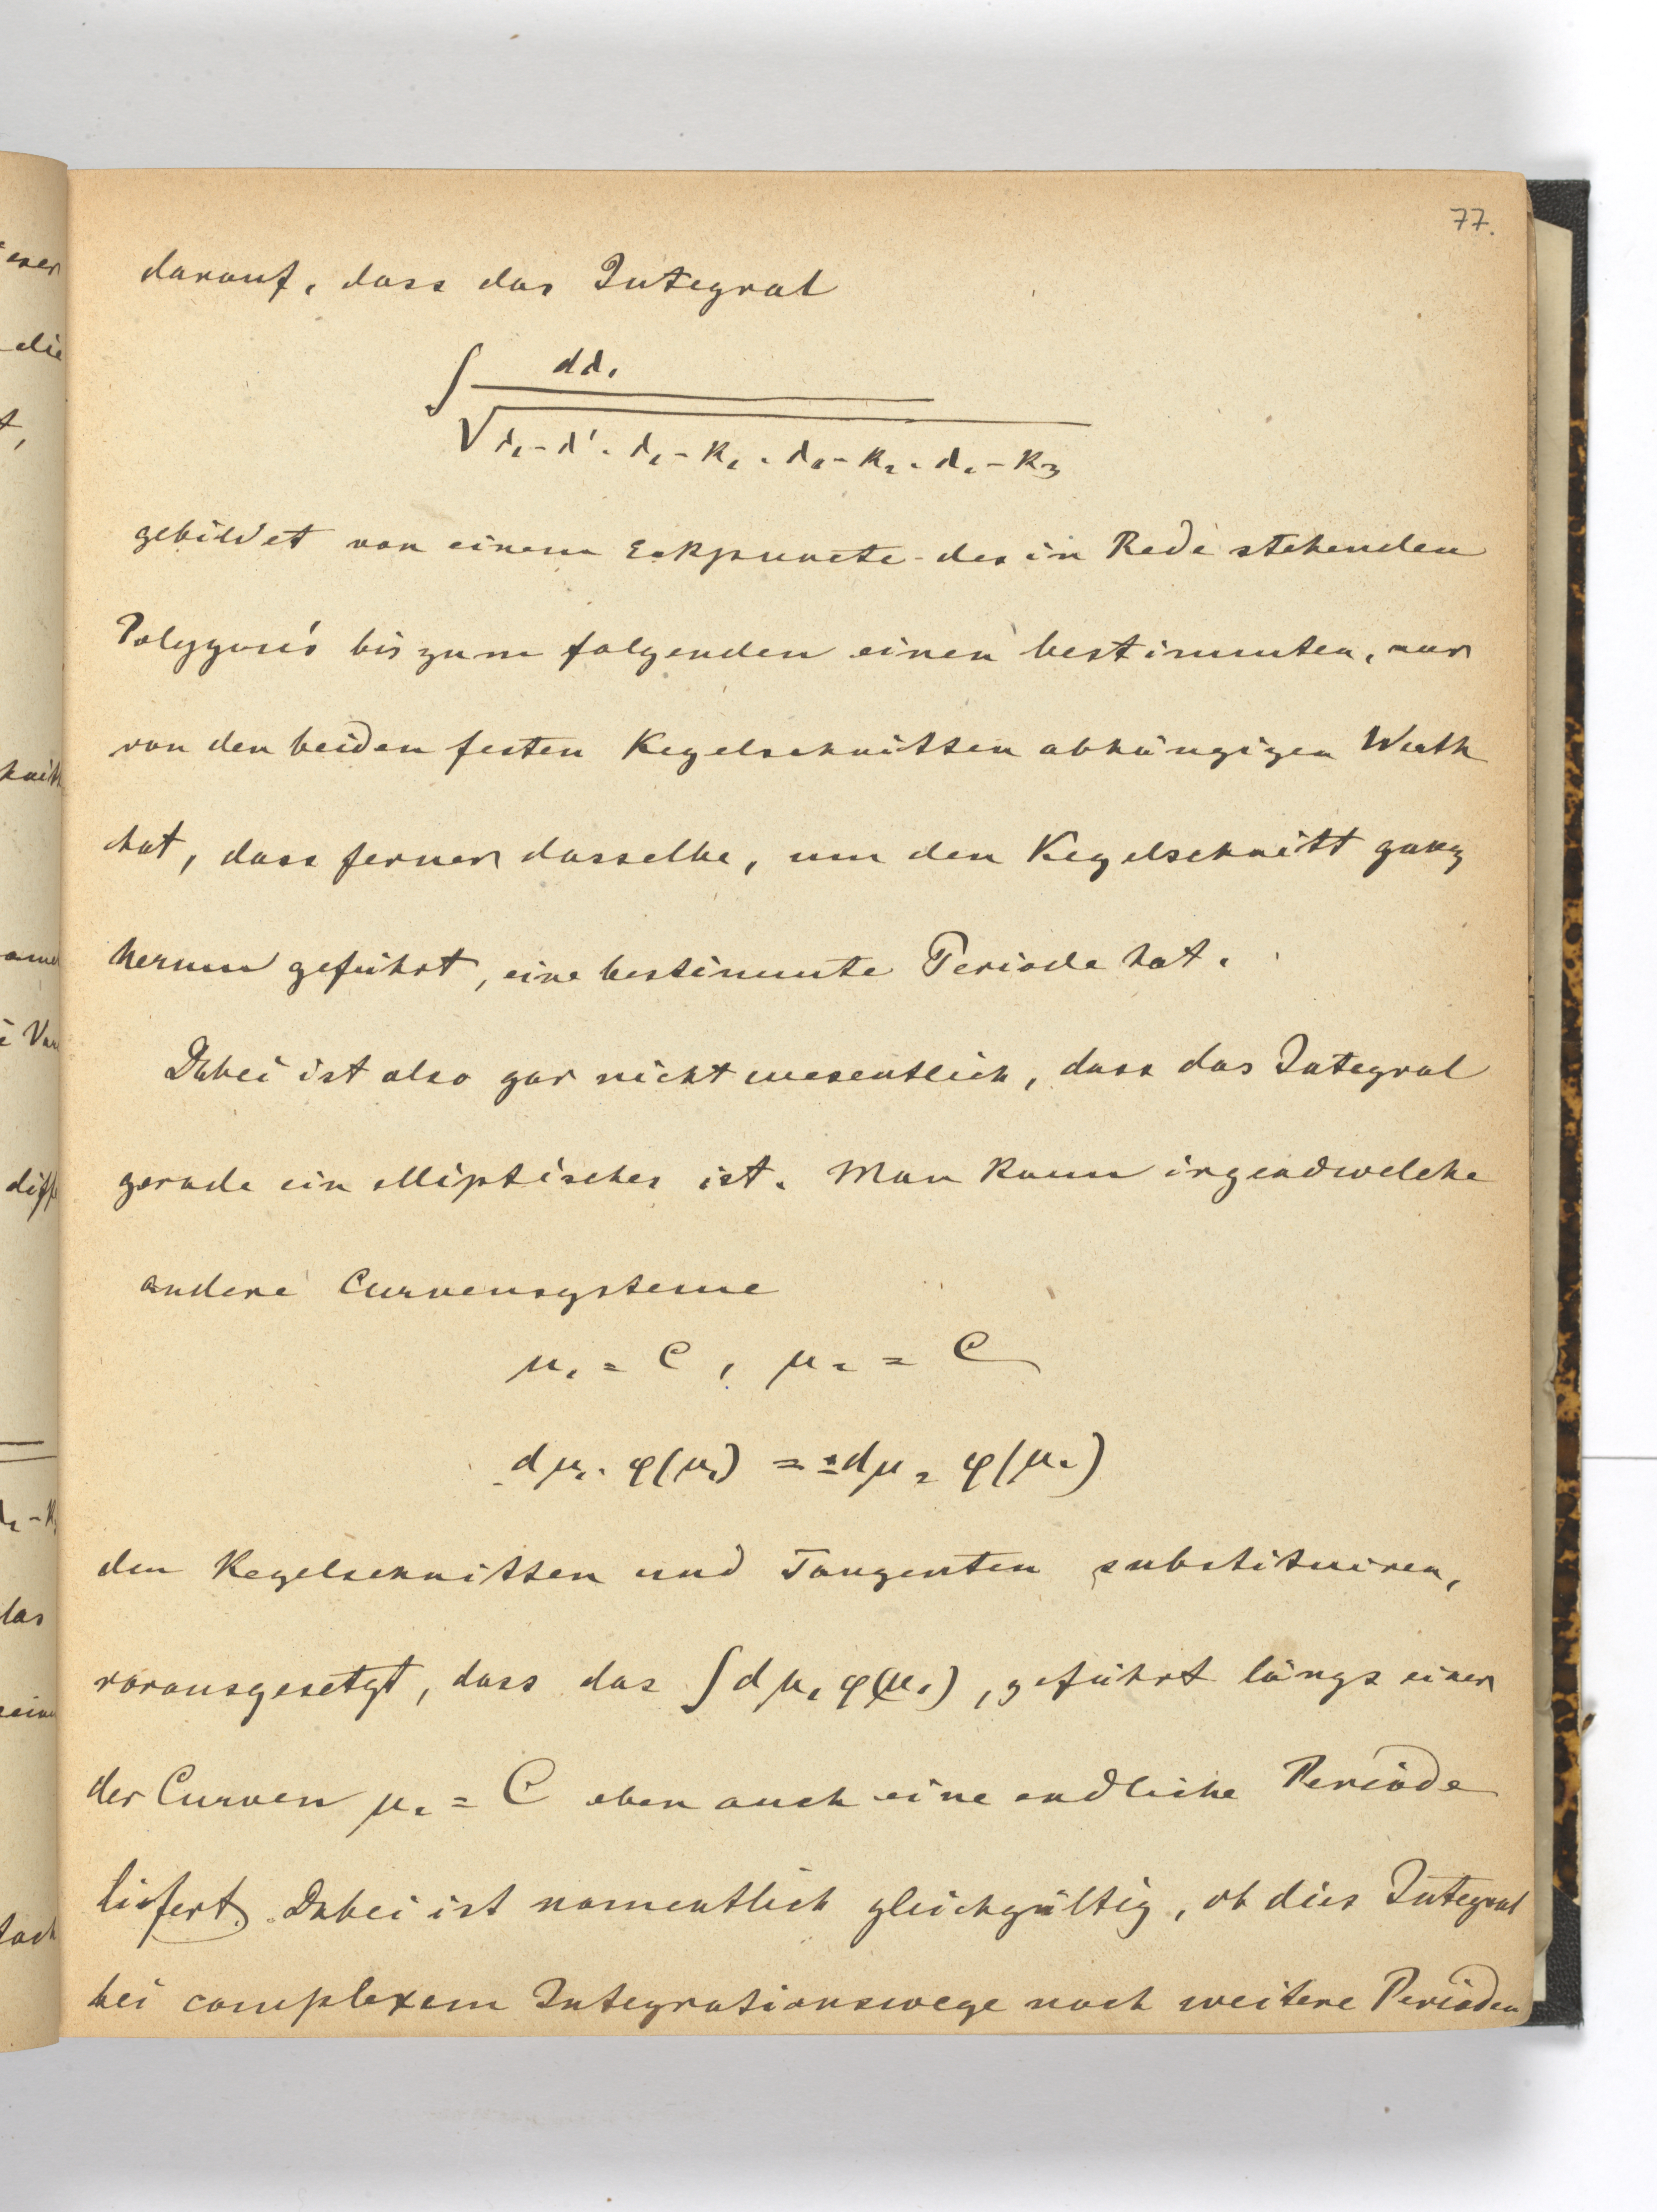 77.
darauf, dass das Integral
∫ dλ₁
√ λ₁ - λ' . λ₁ - k₁ . λ₁ - k₂ . λ₁ - k₃
gebildet von einem Eckpuncte des in Rede stehenden
Polygons bis zum folgenden einen bestimmten, nur
von den beiden festen Kegelschnitten abhängigen Werth
hat, dass ferner dasselbe, um den Kegelschnitt ganz
herum geführt, eine bestimmte Periode hat.
Dabei ist also gar nicht wesentlich, dass das Integral
gerade ein elliptisches ist. Man kann irgendwelche
andere Curvensysteme
μ₁ = C, μ₂ = C
dμ₁ . φ(μ₁) = ± dμ₂ φ(μ₂)
den Kegelschnitten und Tangenten substituiren,
vorausgesetzt, dass das ∫ dμ₁ φ(μ₁), geführt längs einer
der Curven μ₂ = C eben auch eine endliche Periode
liefert. Dabei ist namentlich gleichgültig, ob dies Integral
bei complexem Integrationswege noch weitere Perioden